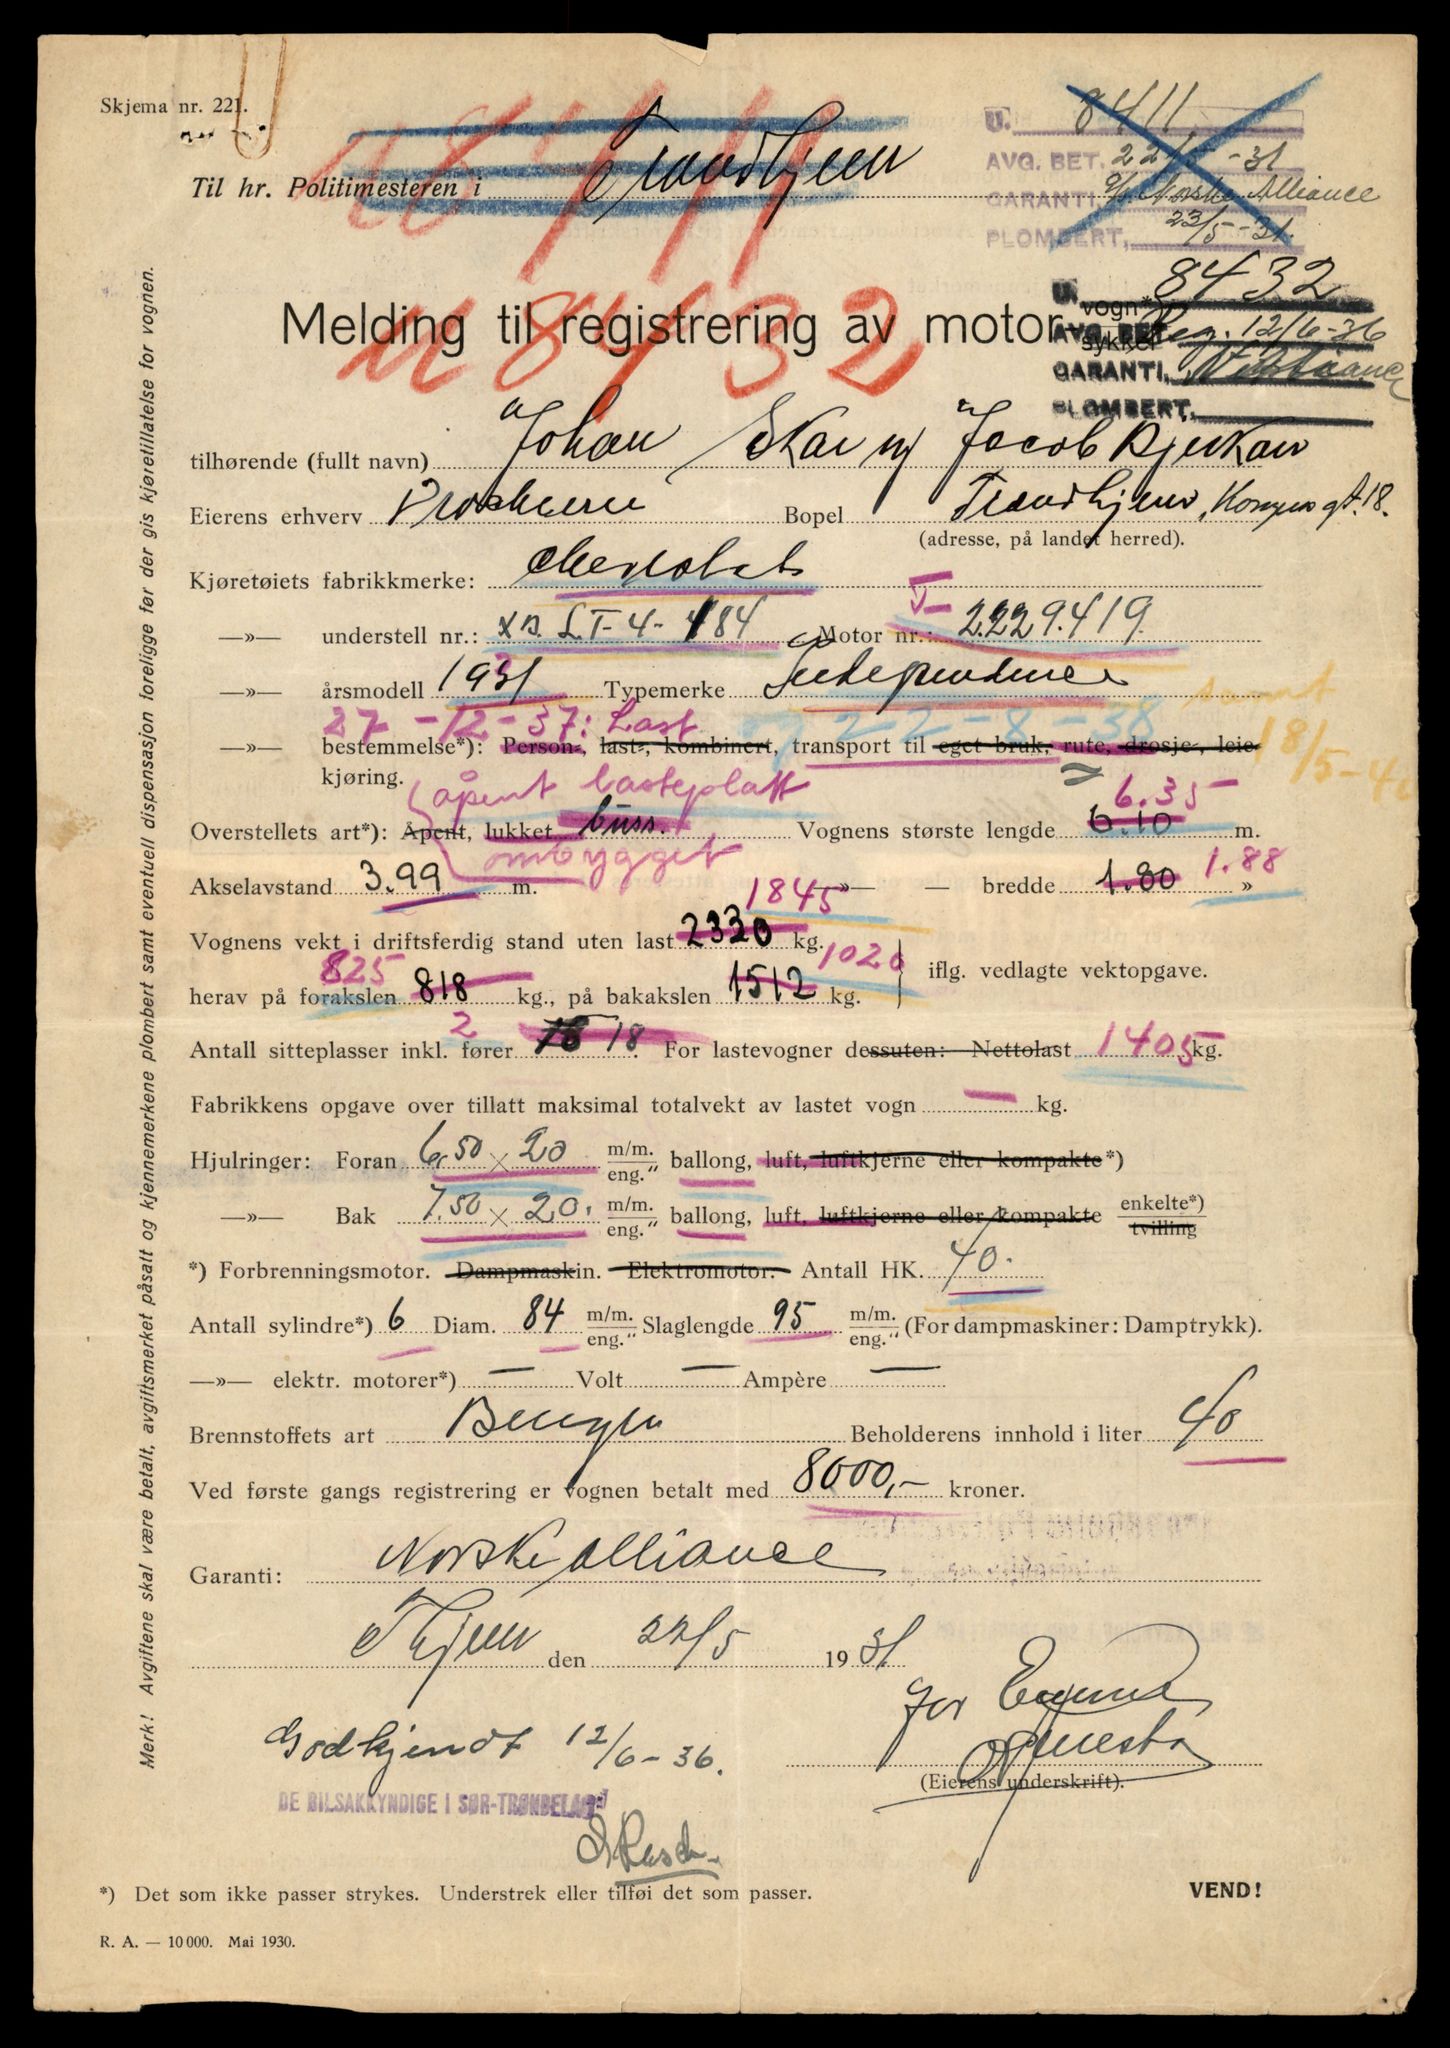 Skjema nr. 221.
U. 8411
AVG. BET. 22/5-31
GARANTI, Norske Alliance
PLOMBERT, 23/5-31.
U 8411
Til hr. Politimesteren i Trondhjem
U. 8432
AVG. BET. Reg. 12/6-36
GARANTI, N. Alliance
PLOMBERT,
Melding til registrering av motor vogn*)
sykkel
U 8432
tilhørende (fullt navn) Johan Skar og Jacob Bjerkan
Eierens erhverv Bopel Trondhjem, Kongens gt. 18.
(adresse, på landet herred).
Kjøretøiets fabrikkmerke: Chevrolet
—»— understell nr.: LT-4-484 Motor nr.: T-2229419.
—»— årsmodell 1931 Typemerke Independence
27-12-37: Last og 2-2-8-38 samt 18/5-40
—»— bestemmelse*): Person-, last-, kombinert, transport til eget bruk, rute, drosje-, leie-
kjøring.
åpent lasteplatt 6.35
Overstellets art*): Åpent, lukket buss. Vognens største lengde 6.10 m.
ombygget
Akselavstand 3.99 m. —»— — bredde 1.80 1.88 »
1845
Vognens vekt i driftsferdig stand uten last 2330 kg.
825 1020
herav på forakslen 818 kg., på bakakslen 1512 kg. iflg. vedlagte vektopgave.
2
Antall sitteplasser inkl. fører 18. For lastevogner dessuten: Nettolast 1405 kg.
Fabrikkens opgave over tillatt maksimal totalvekt av lastet vogn — kg.
Hjulringer: Foran 6.50 × 20 m/m. eng." ballong, luft, luftkjerne eller kompakte*)
—»— Bak 7.50 × 20. m/m. eng." ballong, luft, luftkjerne eller kompakte enkelte*) tvilling
*) Forbrenningsmotor. Dampmaskin. Elektromotor. Antall HK. 40.
Antall sylindre*) 6 Diam. 84 m/m. eng." Slaglengde 95 m/m. eng." (For dampmaskiner: Damptrykk).
—»— elektr. motorer*) — Volt — Ampère —
Brennstoffets art Bensin Beholderens innhold i liter 40
Ved første gangs registrering er vognen betalt med 8000,- kroner.
Garanti: Norske Alliance
Thjem den 22/5 1931
for
(Eierens underskrift).
Godkjendt 12/6-36.
DE BILSAKKYNDIGE I SØR-TRØNDELAG
*) Det som ikke passer strykes. Understrek eller tilføi det som passer.
VEND!
R. A. — 10 000. Mai 1930.
Merk! Avgiftene skal være betalt, avgiftsmerket påsatt og kjennemerkene plombert samt eventuell dispensasjon foreligge før der gis kjøretillatelse for vognen.